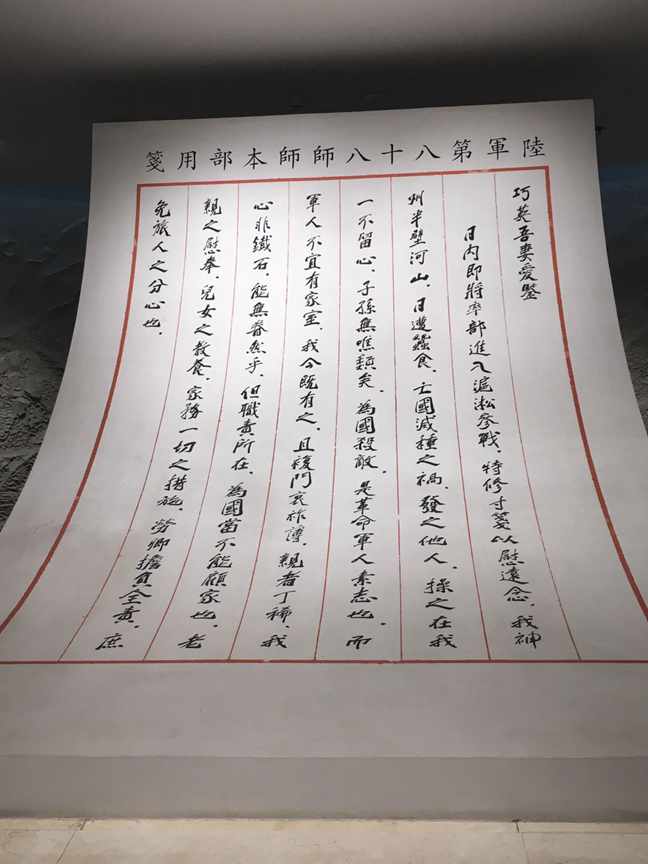 陸軍第八十八師師本部用箋
巧英吾妻愛鑒
日内即將率部進入滬淞參戰，特修寸箋以慰遠念，我神
州半壁河山，日遭蠶食，亡國滅種之禍，發之他人，操之在我
一不留心，子孫無噍類矣，為國殺敵，是革命軍人素志也，而
軍人不宜有家室，我今既有之，且複門衰祚薄，親者丁稀，我
心非鐵石，能無眷然乎，但職責所在，為國當不能顧家也，老
親之慰奉，兒女之教養，家務一切之措施，勞卿擔負全責，庶
免旅人之分心也，